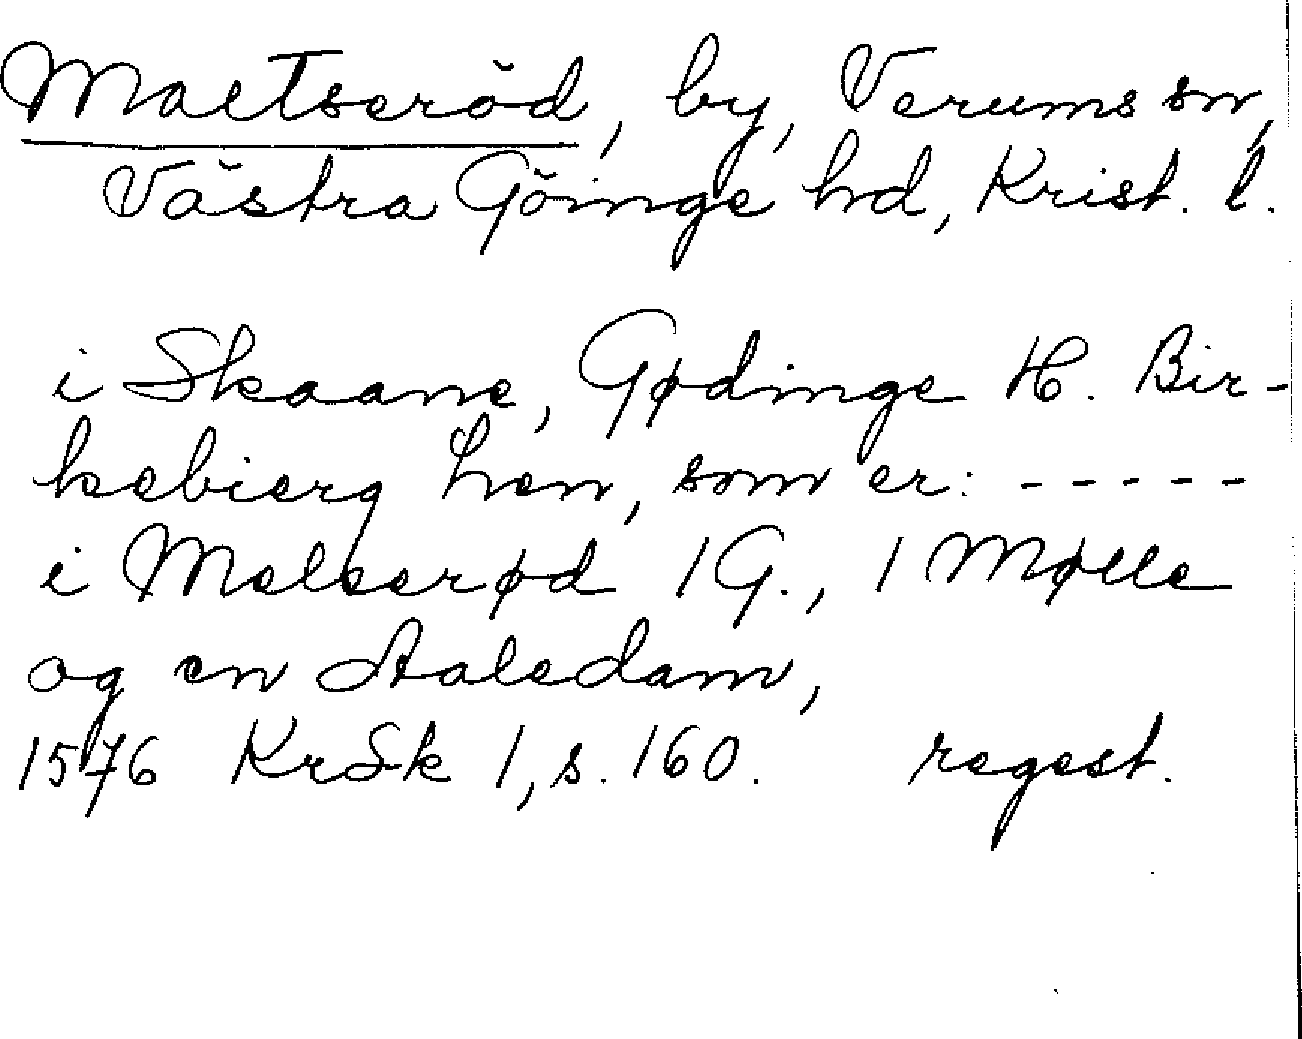 Maltseröd, by, Verums sn,
Västra Göinge hd, Krist. l.
i Skaane, Gødinge H. Bir-
kebierg Len, som er: - - - - -
i Melserød 1 G., 1 Mølle
og en Aaledam,
1576 KrSk 1, s. 160. regest.